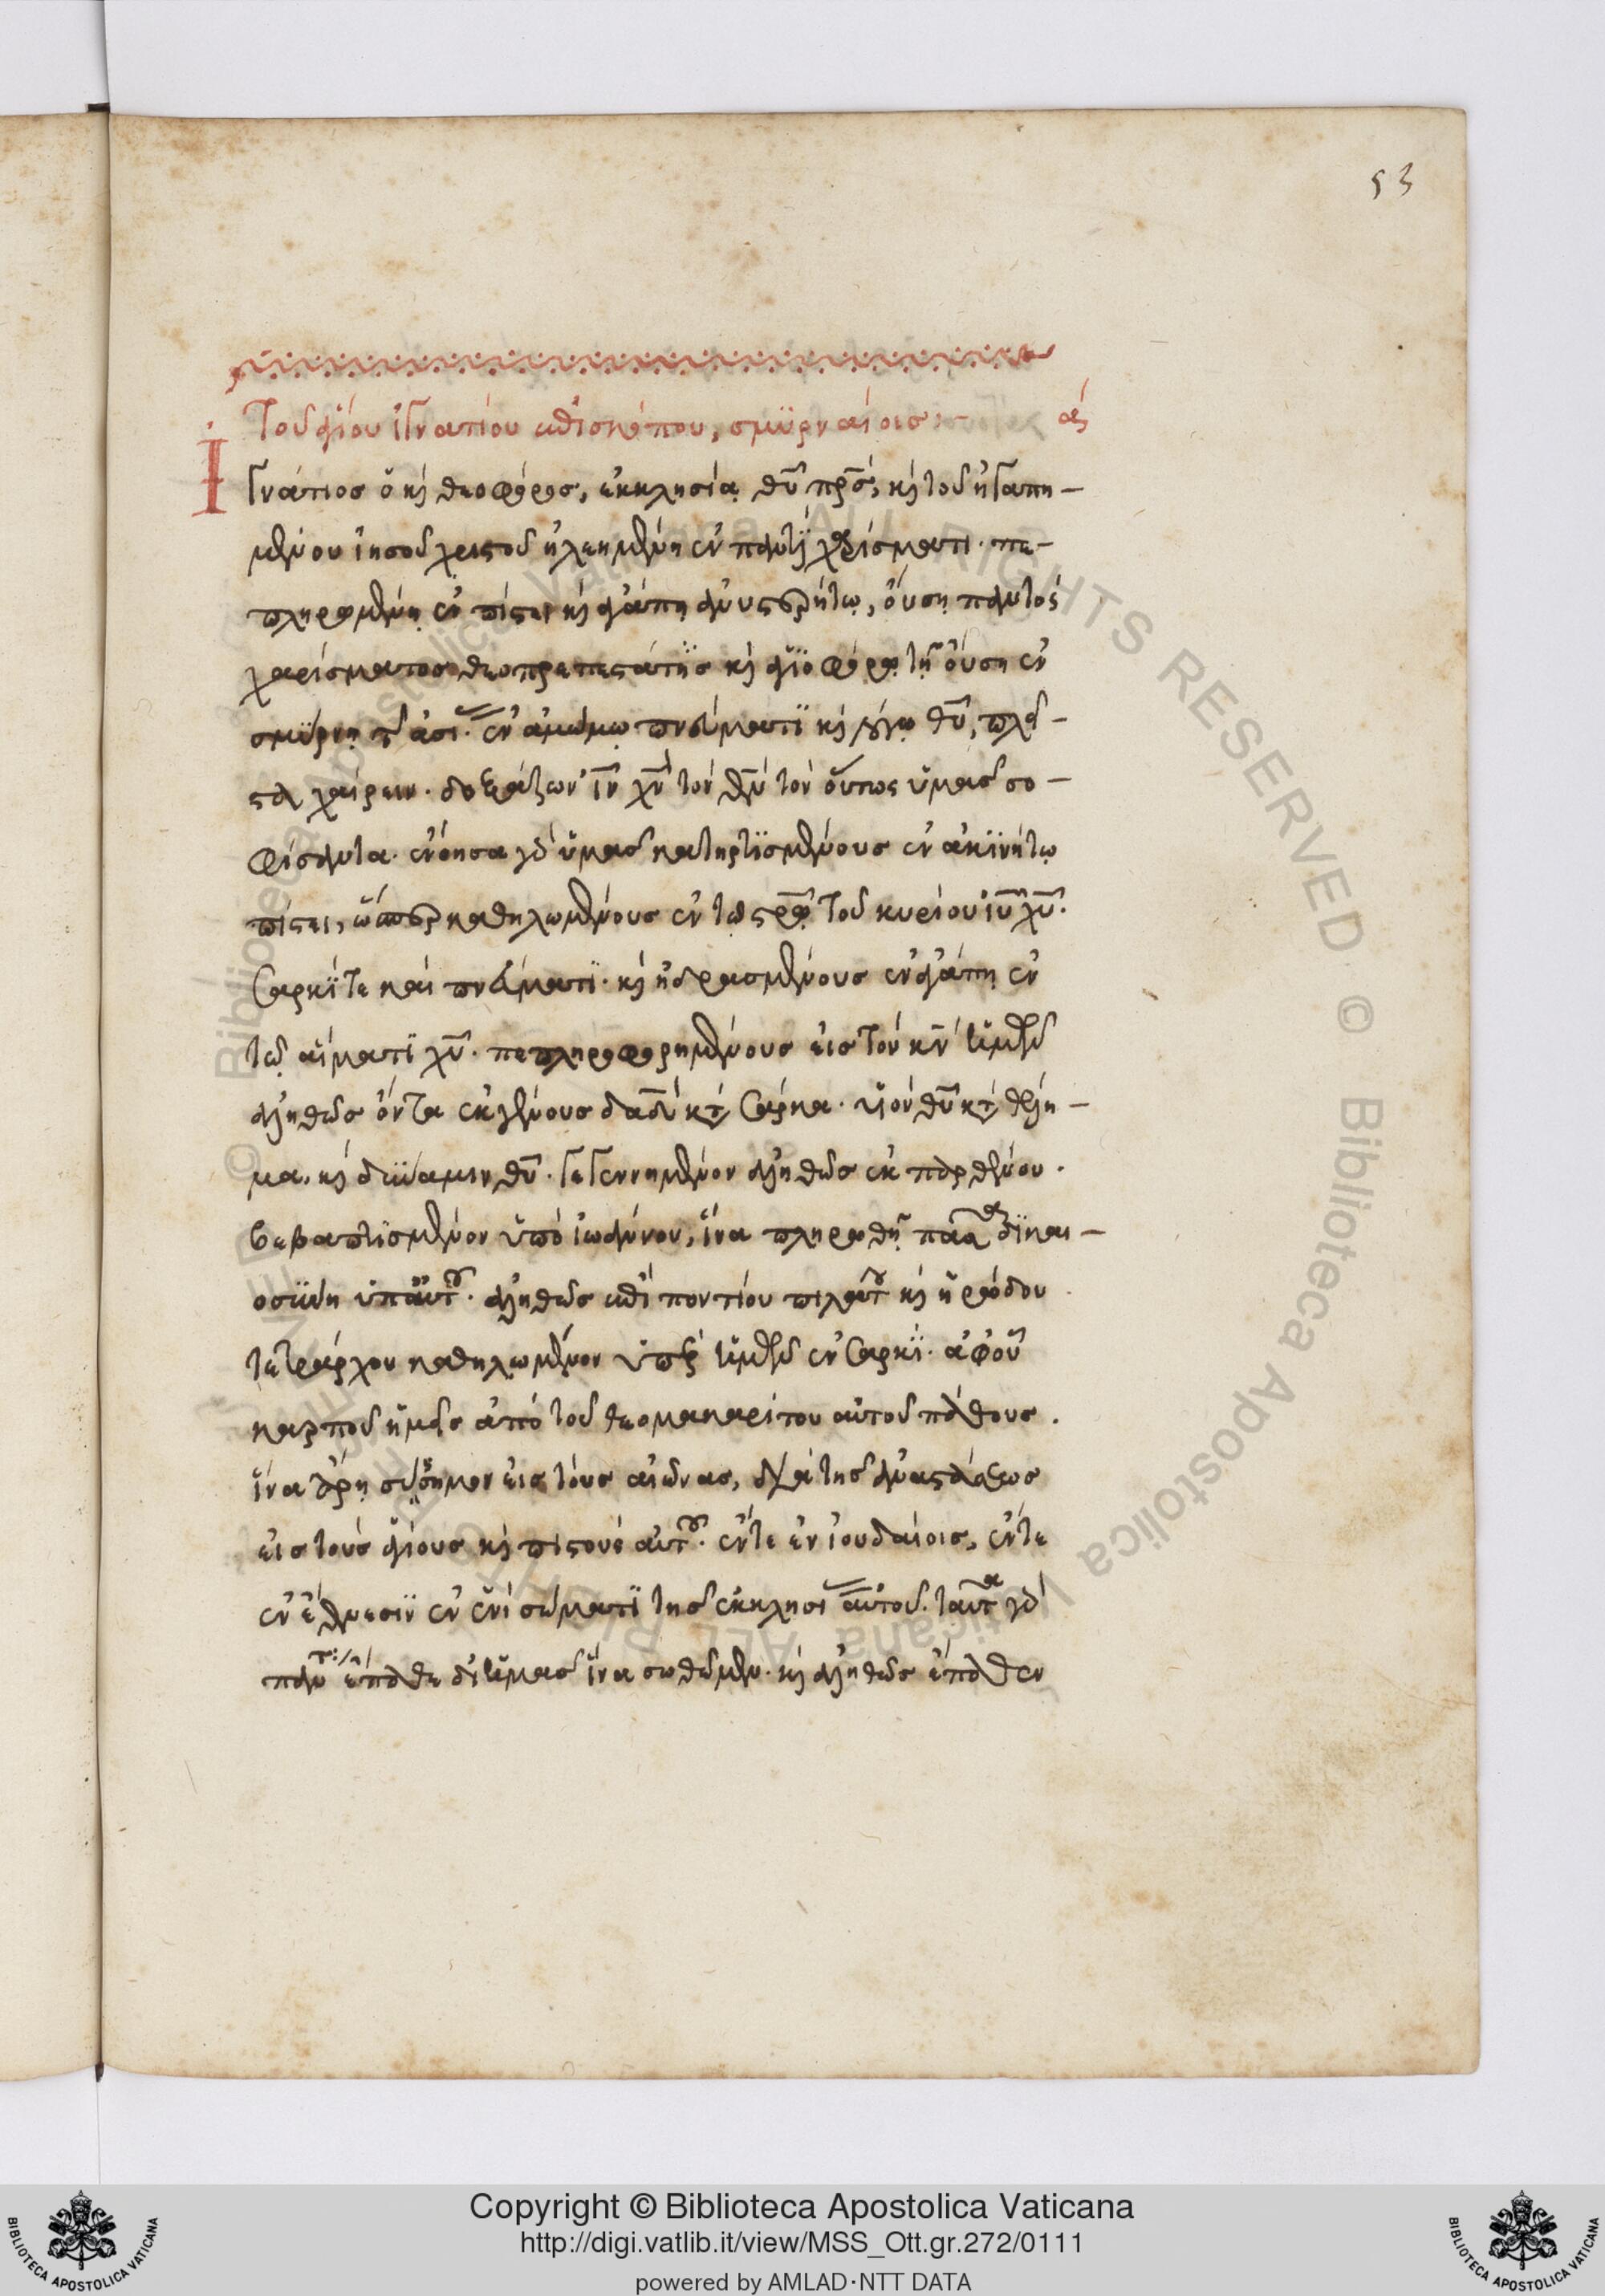 53
Τοῦ ἁγίου ἰγνατίου ἐπισκόπου, σμϋρναίοις
Ἰγνάτιος ὁ κὶ θεοφόρος, ἐκκλησίᾳ θῦ πρσ, κὶ τοῦ ἠγαπη-
μένου ἰησοῦ χριστοῦ ἠλεημένη ἐν παντὶ χαρίσματι. πε-
πληρωμένη ἐν πίστει κὶ ἀγάπῃ ἀνυστερήτῳ, οὔσῃ παντὸς
χαρίσματος θεοπρεπεστάτης κὶ ἁγϊοφόρῳ τῇ οὔσῃ ἐν
σμύρνῃ τῆς ἀσι. ἐν ἀμώμῳ πνεύματϊ κὶ λόγῳ θῦ, πλεῖ-
στα χαίρειν. δοξάζων ἰν χν τὸν θν τὸν οὕτως ὑμᾶς σο-
φίσαντα. ἐνόησα γὰρ ὑμᾶς κατηρτϊσμένους ἐν ἀκϊνήτῳ
πίστει, ὥσπερ καθηλωμένους ἐν τῷ στρῷ τοῦ κυρίου ἰυ χυ.
σαρκί τε καὶ πνεύματϊ. κὶ ἡδρασμένους ἐν ἀγάπῃ ἐν
τῷ αἵματϊ χυ. πεπληροφορημένους εἰς τὸν κν ἡμῶν
ἀληθῶς ὄντα ἐκ γένους δαδ κτ σάρκα. υἱὸν θυ κτ θέλη-
μα, κὶ δύναμιν θυ. γεγεννημένον ἀληθῶς ἐκ παρθένου.
βεβαπτϊσμένον ὑπὸ ἰωάννου, ἵνα πληρωθῇ πᾶσα δϊκαι-
οσύνη ὑπ' αὐτοῦ. ἀληθῶς ἐπὶ ποντίου πιλάτου κὶ ἡρώδου
τετράρχου καθηλωμένον ὑπὲρ ἡμῶν ἐν σαρκϊ. ἀφ' οὗ
καρποῦ ἡμεῖς ἀπὸ τοῦ θεομακαρίτου αὐτοῦ πάθους.
ἵνα ἄρῃ σύσσημον εἰς τοὺς αἰῶνας, διὰ τῆς ἀναστάσεως
εἰς τοὺς ἁγίους κὶ πιστοὺς αὐτοῦ. ἔν τε ἐν ἰουδαίοις, ἔν τε
ἐν ἔθνεσϊν ἐν ἑνὶ σώματϊ τῆς ἐκκλησι αὐτοῦ. ταῦτα γὰρ
πάντ ἔπαθε δι' ἡμᾶς ἵνα σωθῶμεν. κὶ ἀληθῶς ἔπαθεν
Copyright © Biblioteca Apostolica Vaticana
http://digi.vatlib.it/view/MSS_Ott.gr.272/0111
powered by AMLAD·NTT DATA
BIBLIOTECA APOSTOLICA VATICANA
BIBLIOTECA APOSTOLICA VATICANA
© Biblioteca Apostolica Vaticana ALL RIGHTS RESERVED
© Biblioteca Apostolica Vaticana ALL RIGHTS RESERVED